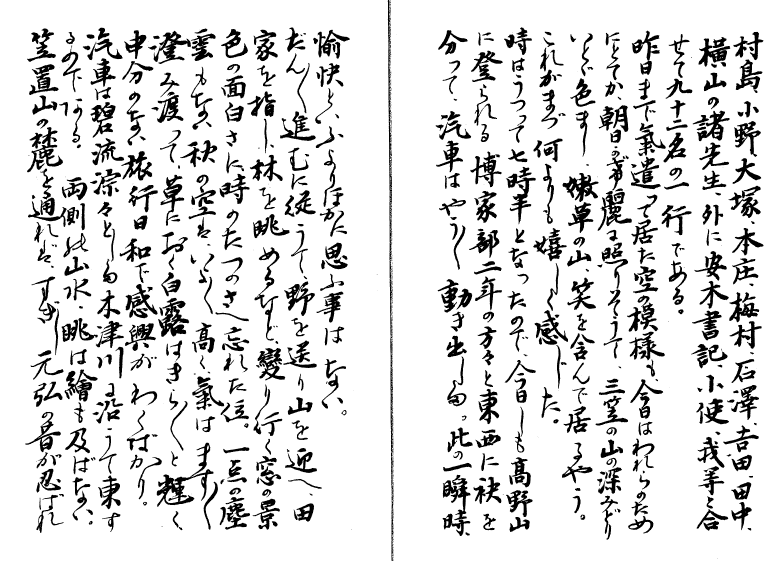 村島、小野、大塚、本庄、梅村、石澤、吉田、田中、
横山の諸先生、外に安木書記、小使、我等を合
せて九十二名の一行である。
昨日まで氣遣つて居た空の模様も、今日はわれらのため
にとてか、朝日が麗に照りそうて、三笠の山の深みどり
いとゞ色まし、嫩草の山、笑を含んで居るやう。
これがまづ何よりも嬉しく感じた。
時はうつつて七時半となつたので、今日しも高野山
に登られる博家部二年の方々と東西に袂を
分つて、汽車はやう〳〵動き出した。此の一瞬時、
愉快といふよりほかに思ふ事はない。
だん〳〵進むに從うて、野を送り山を迎へ、田
家を指し林を眺めるなど、變り行く窓の景
色の面白さに時のたつのさへ忘れた位。一点の塵
雲もない秋の空は、いよ〳〵高く、氣はます〳〵
澄み渡つて、草におく白露はきら〳〵と輝く、
申分のない旅行日和で感興がわくばかり。
汽車は碧流淙々とした木津川に沿うて東す
るのである。両側の山水、眺は繪も及ばない。
笠置山の麓を通れば、すぎし元弘の昔が忍ばれ